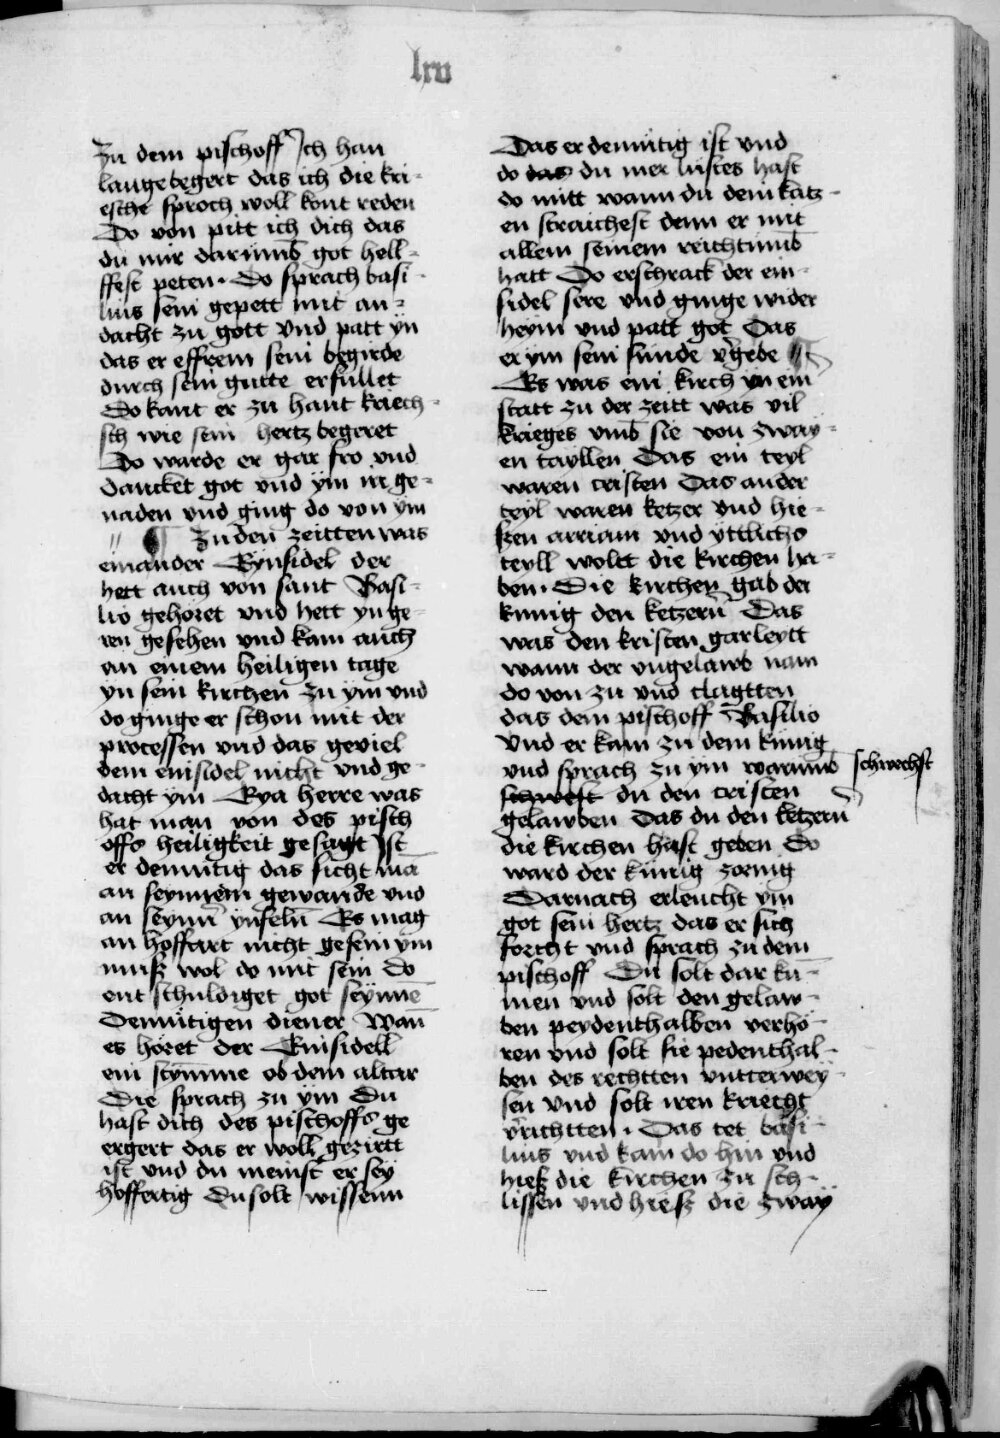 lxv
Zu dem pischoff Ich han
lange begert das ich die kri-
esche sproch woll kont reden
Do von pitt ich dich das
du mir darumb got hell-
ffest peten. Do sprach basi-
lius sein gepett mit an-
dacht zu gott vnd patt yn
das er effrem sein begirde
durch sein gutte erfullet
Do kant er zu hant kriech-
sch wie sein hertz begeret
Do warde er gar fro vnd
dancket got vnd ym ir ge-
naden vnd ging do von ym
// ¶ Zu den zeitten was
einander Eynsidel der
hett auch von sant Basi-
lio gehöret vnd hett yn ge-
ren gesehen vnd kam auch
an einem heiligen tage
yn sein kirchen zu ym vnd
do ginge er schon mit der
processen vnd das geviel
dem einsidel nicht vnd ge-
dacht ym Eya herre was
hat man von des pisch
offs heiligkeit gesagt Ist
er demutig das sicht mā
an seynnem gewande vnd
an seynn̄ ynfeln̄ Es mag
an hoffart nicht gesein ym
musz wol do mit sein Do
ent schuldiget got seynnē
Demütigen diener Wan̄
es höret der Einsidell
ein stymme ob dem altar
Die sprach zu ym Du
hast dich des pischoffs ge
ergert das er woll gezirtt
ist vnd du meinst er sey
hoffertig Du solt wissenn
Das er demütig ist vnd
do das du mer lustes hast
do mitt wann du dein katz-
en straichest denn er mit
allem seinem reichtumb
hatt Do erschrack der ein-
sidel sere vnd ginge wider
heym vnd patt got Das
er ym sein sunde v̄gebe //
Es was ein kirch yn ein
statt zu der zeitt was vil
krieges vmb sie von zway-
en tayllen Das ein teyl
waren cristen Das ander
teyl waren ketzer vnd hie-
szen arriani vnd yttlichs
teyll wolt die kirchen ha-
ben. Die kirchen gab der
kunig den ketzern̄ Das
was den kristen gar leytt
wann der vngelawb nam
do von zu vnd clagtten
das dem pischoff Basilio
Vnd er kam zu dem künig
vnd sprach zu ym warumb schwechst
schwest du den cristen
gelawben Das du den ketzern̄
die kirchen hast geben Do
ward der künig zornig
Darnach erleucht ym
got sein hertz das er sich
forcht vnd sprach zu dem
pischoff Du solt dar ku-
men vnd solt den gelaw-
ben peydenthalben verhö-
ren vnd solt sie pedenthal-
ben des rechtten vntterwey-
sen vnd solt iren kriecht
v̄richtten. Das tet basi-
lius vnd kam do hin vnd
hiesz die kirchen zu sch-
lissen vnd hiesz die zway